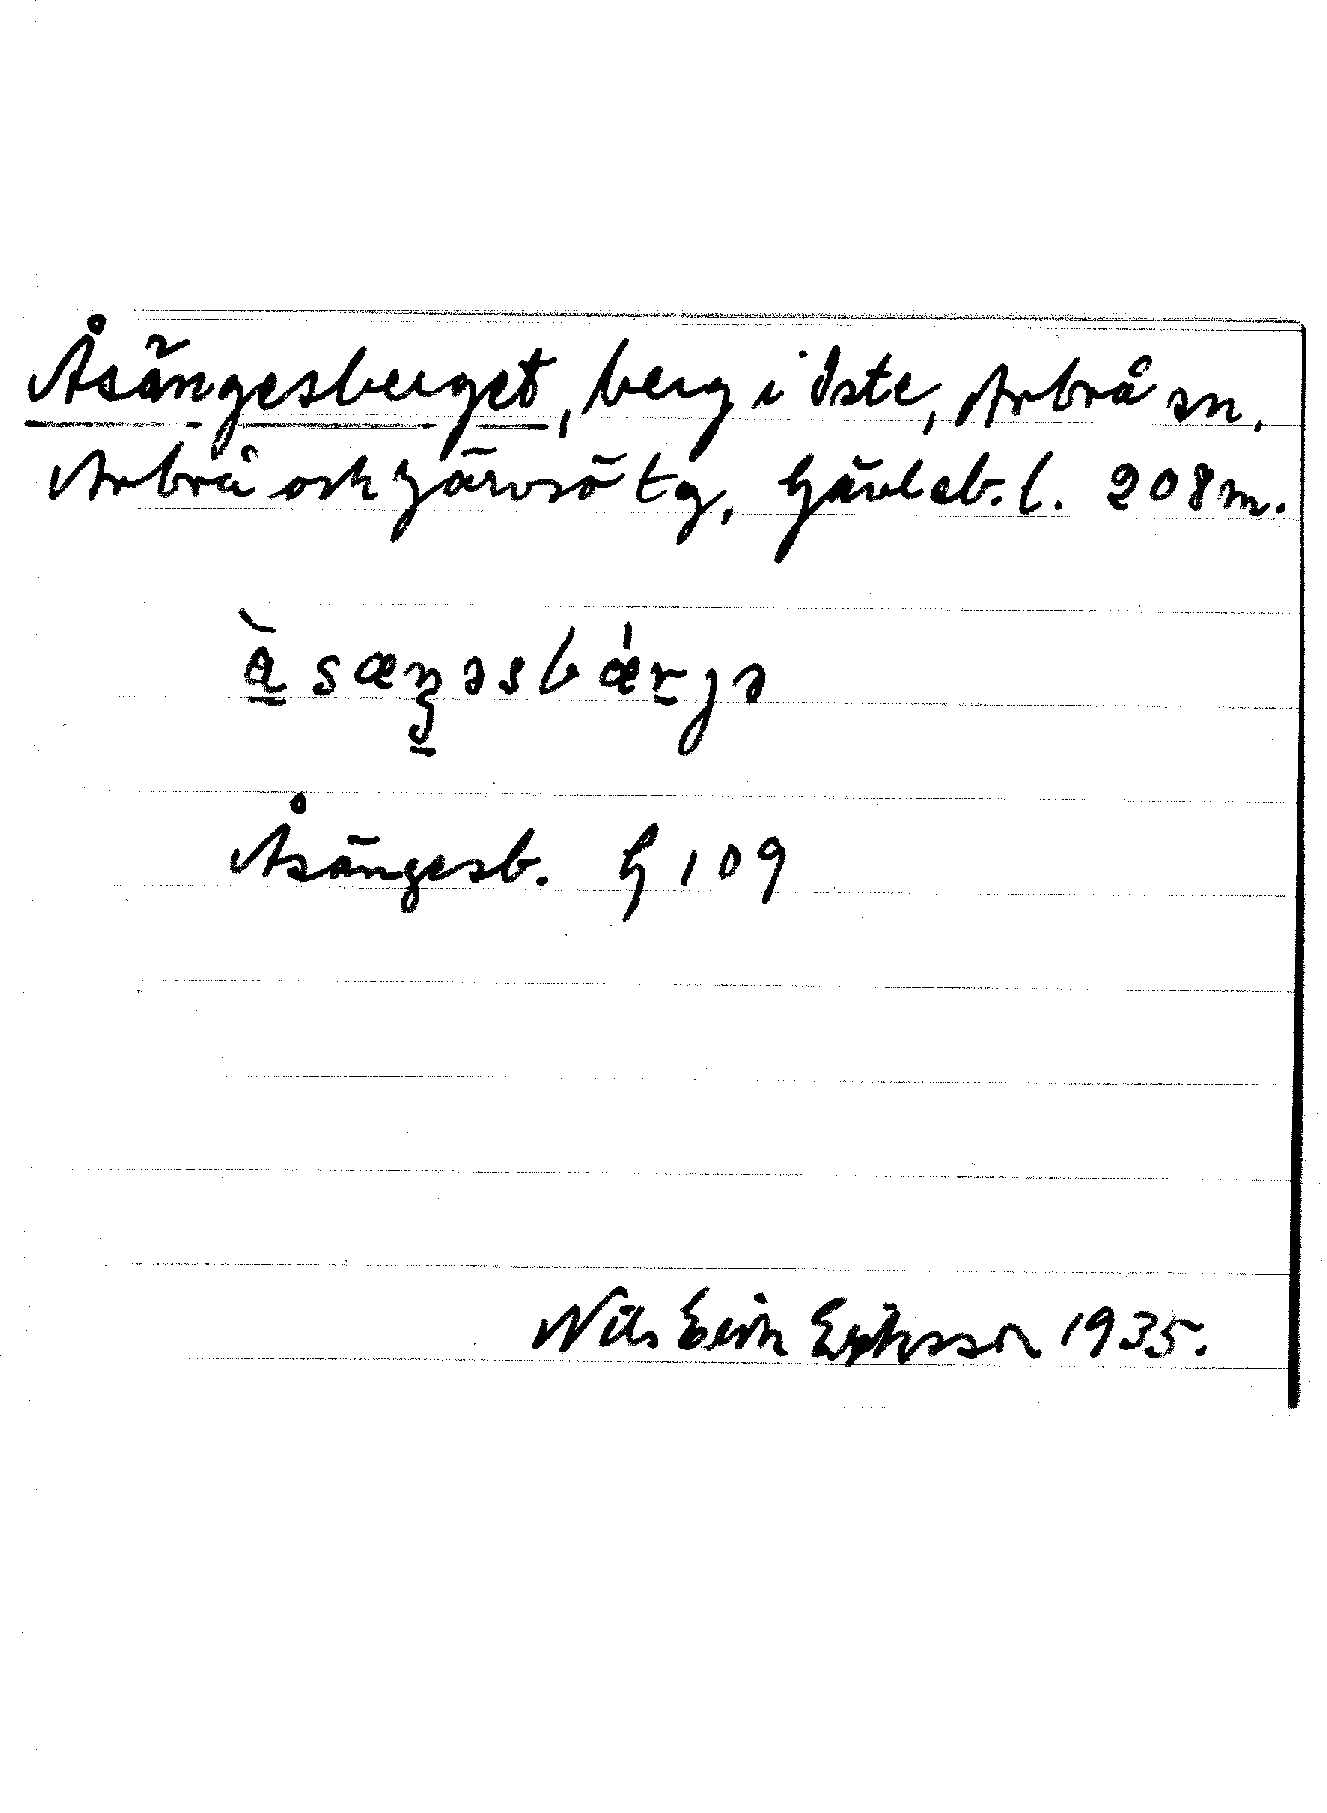 Åsängesberget, berg i Iste, Arbrå sn,
Arbrå och Järvsö tg, Gävleb. l. 208 m.
Åsängesb. G 109
Nils Eirik Eriksson 1935.